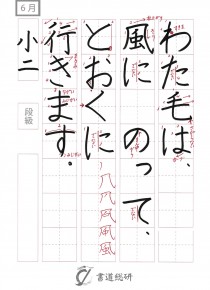 わた毛は、
風に のって、
とおくに
行きます。
6月
小二
段級
書道総研